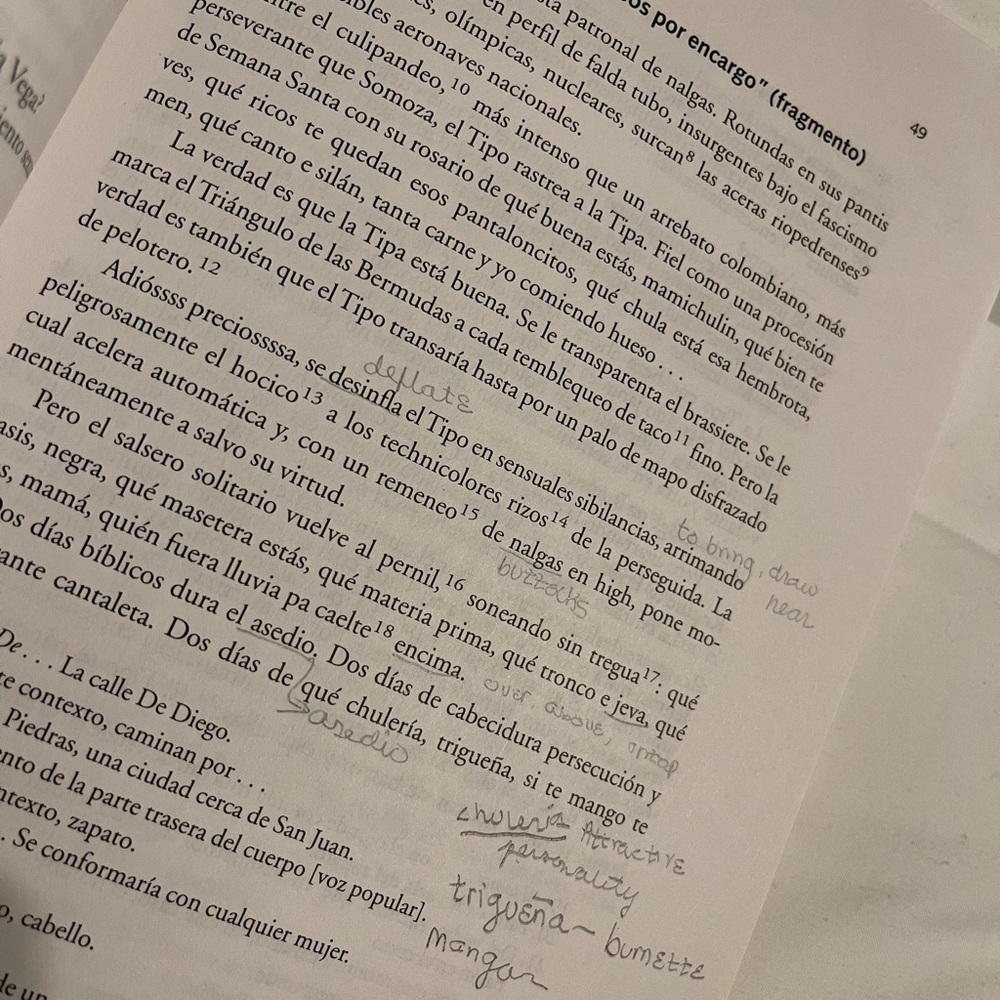 a Vega?
iento
os por encargo" (fragmento)
49
sta patronal de nalgas. Rotundas en sus pantis
en perfil de falda tubo, insurgentes bajo el fascismo
es, olímpicas, nucleares, surcan⁸ las aceras riopedrenses⁹
ibles aeronaves nacionales.
tre el culipandeo,¹⁰ más intenso que un arrebato colombiano, más
perseverante que Somoza, el Tipo rastrea a la Tipa. Fiel como una procesión
de Semana Santa con su rosario de qué buena estás, mamichulin, qué bien te
ves, qué ricos te quedan esos pantaloncitos, qué chula está esa hembrota,
men, qué canto e silán, tanta carne y yo comiendo hueso . . .
La verdad es que la Tipa está buena. Se le transparenta el brassiere. Se le
marca el Triángulo de las Bermudas a cada tembleequeo de taco¹¹ fino. Pero la
verdad es también que el Tipo transaría hasta por un palo de mapo disfrazado
de pelotero.¹²
Adióssss preciosssssa, se desinfla el Tipo en sensuales sibilancias, arrimando
deflate
to bring, draw
near
peligrosamente el hocico¹³ a los technicolores rizos¹⁴ de la perseguida. La
cual acelera automática y, con un remeneo¹⁵ de nalgas en high, pone mo-
buttocks
mentáneamente a salvo su virtud.
Pero el salsero solitario vuelve al pernil,¹⁶ soneando sin tregua¹⁷: qué
asis, negra, qué masetera estás, qué materia prima, qué tronco e jeva, qué
s, mamá, quién fuera lluvia pa caelte¹⁸ encima.
over, above,
Dos días bíblicos dura el asedio. Dos días de cabecidura persecución y
asedio
ante cantaleta. Dos días de qué chulería, trigueña, si te mango te
chulería Attractive
personality
trigueña~ burnette
mangar
De . . . La calle De Diego.
te contexto, caminan por . . .
Piedras, una ciudad cerca de San Juan.
nto de la parte trasera del cuerpo [voz popular].
ntexto, zapato.
. Se conformaría con cualquier mujer.
o, cabello.
de un